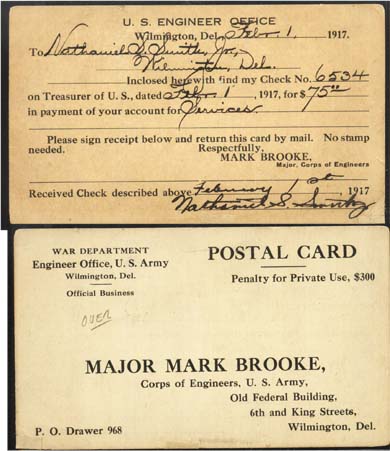 U. S. ENGINEER OFFICE
Wilmington, Del. Febr. 1, 1917.
To Nathaniel S. Smith, Jr.,
Wilmington, Del.
Inclosed herewith find my Check No. 6534
on Treasurer of U. S., dated Febr. 1, 1917, for $75.00
in payment of your account for Services.
Please sign receipt below and return this card by mail. No stamp
needed. Respectfully,
MARK BROOKE,
Major, Corps of Engineers
Received Check described above February 1st, 1917
Nathaniel S. Smith Jr
WAR DEPARTMENT
Engineer Office, U. S. Army
Wilmington, Del.
Official Business
POSTAL CARD
Penalty for Private Use, $300
OVER
MAJOR MARK BROOKE,
Corps of Engineers, U. S. Army,
Old Federal Building,
6th and King Streets,
P. O. Drawer 968 Wilmington, Del.